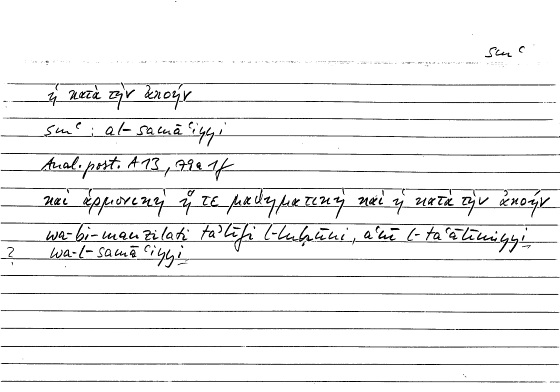 smʿ
ἡ κατὰ τὴν ἀκοήν
smʿ : al-samāʿiyyi
Anal. post. A 13, 79a 1f
καὶ ἁρμονικὴ ἥ τε μαθηματικὴ καὶ ἡ κατὰ τὴν ἀκοήν
wa-bi-manzilati taʾlīfi l-luḥūni, aʿnī l-taʿālīmiyyi
? wa-l-samāʿiyyi